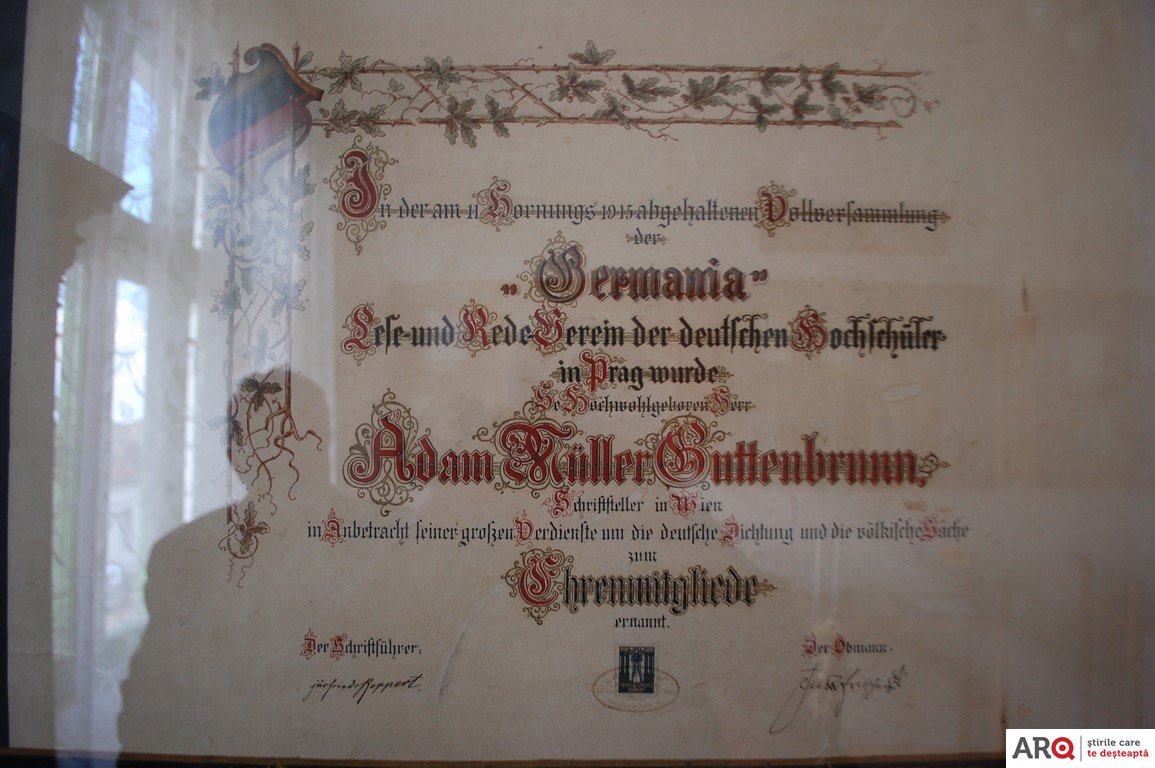 In der am 11. Hornungs 1915 abgehaltenen Vollversammlung
der
„Germania”
Lese- und Rede-Verein der deutschen Hochschüler
in Prag wurde
Se. Hochwohlgeboren Herr
Adam Müller Guttenbrunn,
Schriftsteller in Wien
in Anbetracht seiner großen Verdienste um die deutsche Dichtung und die völkische Sache
zum
Ehrenmitgliede
ernannt.
Der Schriftführer:
Der Obmann:
ARQ știrile care
te deșteaptă